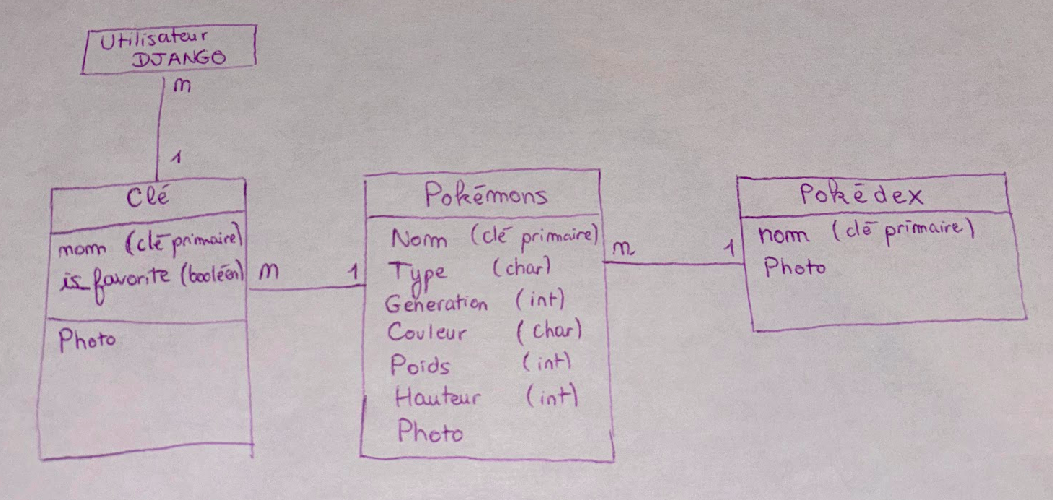 Utilisateur
DJANGO
m
1
Clé
nom (clé primaire)
is_favorite (booléen)
Photo
m
1
Pokémons
Nom (clé primaire)
Type (char)
Géneration (int)
Couleur (char)
Poids (int)
Hauteur (int)
Photo
m
1
Pokédex
nom (clé primaire)
Photo